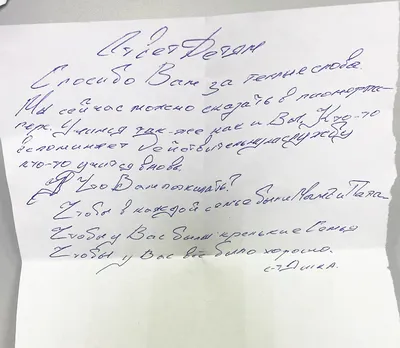 Ответ Детям
Спосибо Вам за теплые слова.
Мы сейчас можно сказать в
Учимся так-же как и Вы, Кто-то
вспоминает действительную службу
кто-то учится внова.
Что Вам пожелать?
Чтобы в каждой семье были Мама и Папа
Чтобы у Вас были крепкие Семья
Чтобы у Вас всё было хорошо.